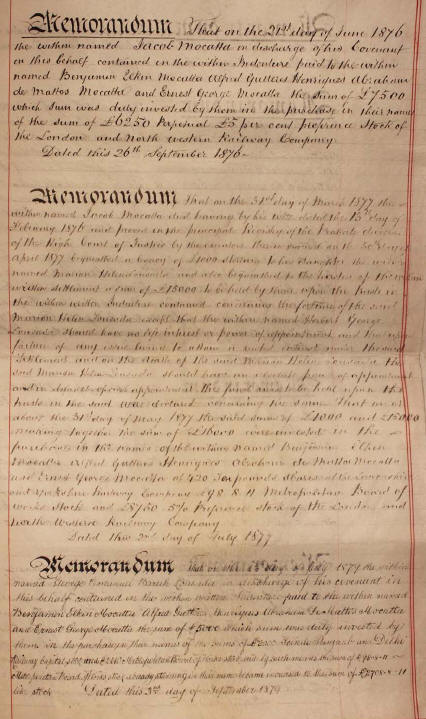 Memorandum That on the 21st day of June 1876
the within named Jacob Mocatta in discharge of his Covenant
in this behalf contained in the within Indenture paid to the within
named Benjamin Elkin Mocatta Alfred Gutteres Henriques Abraham
de Mattos Mocatta and Ernest George Mocatta the sum of £7500
which sum was duly invested by them in the purchase in their names
of the sum of £6250 Perpetual £5 per cent preference Stock of
the London and North Western Railway Company
Dated this 26th September 1876
Memorandum that on the 31st day of March 1877 the
within named Jacob Mocatta died having by his will dated the 15th day of
February 1876 and proved in the principal Registry of the Probate division
of the High Court of Justice by the executors therein named on the day of
April 1877 bequeathed a legacy of £1000 sterling to his daughter the within
named Marion Helen Lousada and also bequeathed to the trustees of the within
written settlement a sum of £15000 to be held by them upon the trusts in
the within written Indenture contained concerning the fortune of the said
Marion Helen Lousada except that the within named Herbert George
Lousada should have no life interest or power of appointment and that upon
failure of any issue living to attain a vested interest under the said
Settlement and on the death of the said Marion Helen Lousada the
said Marion Helen Lousada should have an power of appointment
and in default of such appointment the fund was to be held upon the
trusts in the said will declared concerning the same That on or
about the 31st day of May 1877 the said sums of £1000 and £15000
making together the sum of £16000 were invested in the
purchase in the names of the within named Benjamin Elkin
Mocatta Alfred Gutteres Henriques Abraham de Mattos Mocatta
and Ernest George Mocatta of 420 Ten pounds shares of the Lancashire
and Yorkshire Railway Company £98 8 11 Metropolitan Board of
Works Stock and £8750 5% Preference Stock of the London and
North Western Railway Company
Dated this 2nd day of July 1877
Memorandum that on the day of July 1879 the within
named George Emanuel Baruh Lousada in discharge of his covenant in
this behalf contained in the within written Indenture paid to the within named
Benjamin Elkin Mocatta Alfred Gutteres Henriques Abraham De Mattos Mocatta
and Ernest George Mocatta the sum of £5000 which sum was duly invested by
them in the purchase in their names of the sums of Scinde Punjaub and Delhi
Railway Capital stock and Metropolitan Board of Works stock and by such means the sum of
Metropolitan Board of Works stock already standing in their names became increased to the sum of £2708-8-11
like stock Dated this 3rd day of September 1879